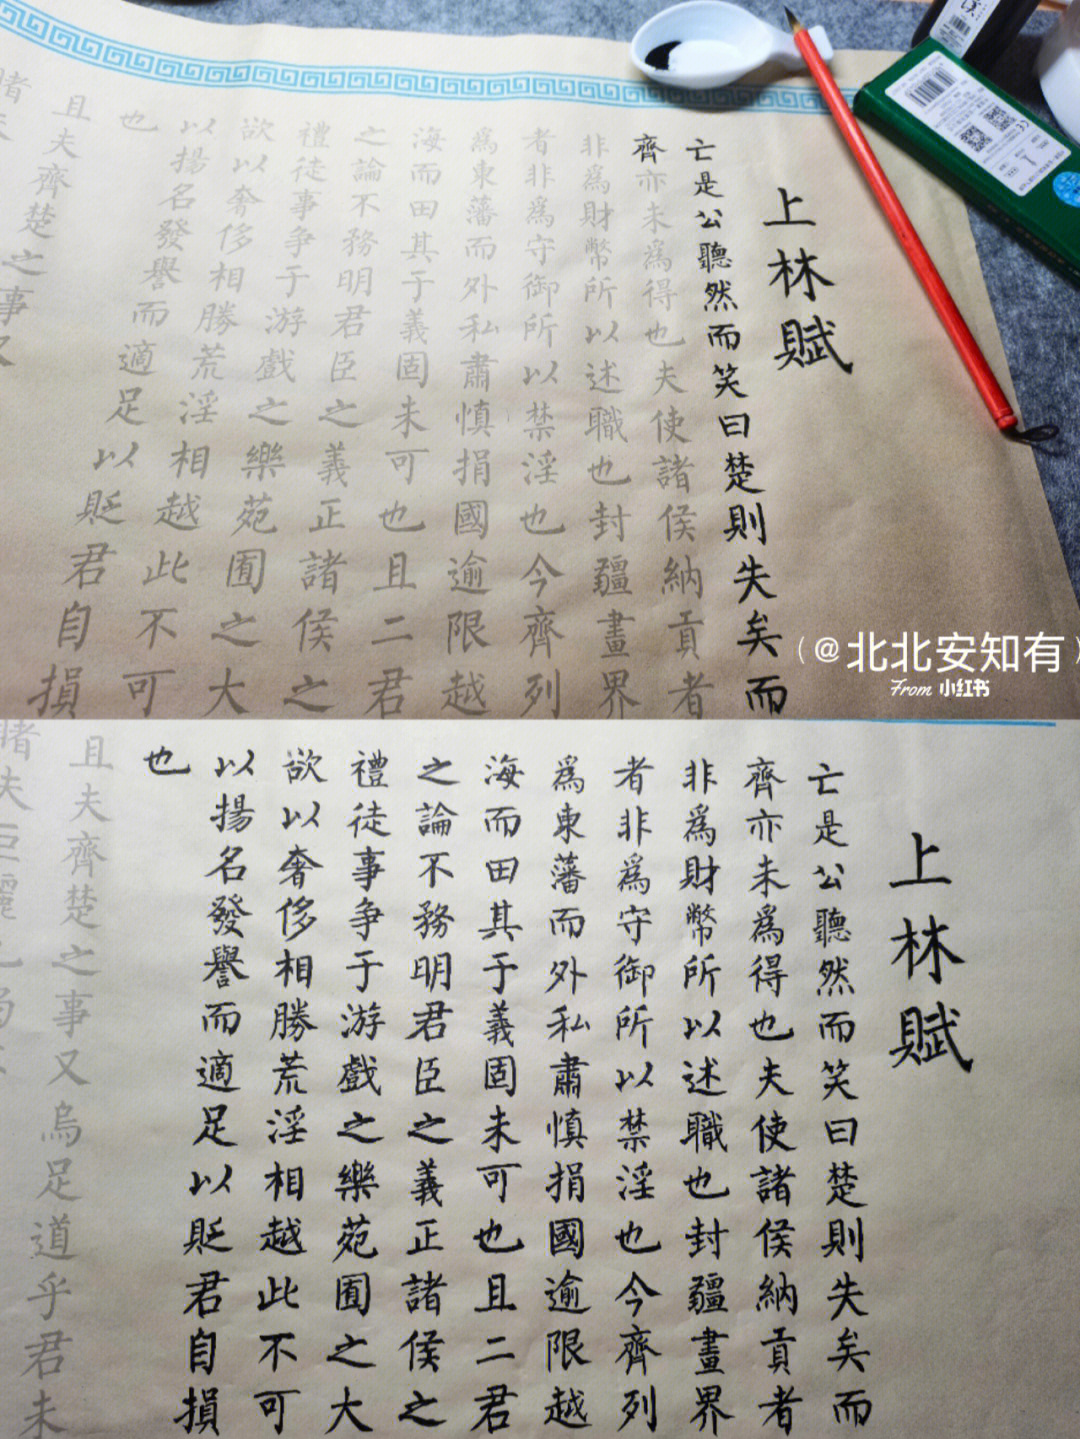 上林賦
亡是公聽然而笑曰楚則失矣而
齊亦未為得也夫使諸侯納貢者
非為財幣所以述職也封疆畫界
者非為守御所以禁淫也今齊列
為東藩而外私肅慎捐國逾限越
海而田其于義固未可也且二君
之論不務明君臣之義正諸侯之
禮徒事争于游戲之樂苑囿之大
欲以奢侈相勝荒淫相越此不可
以揚名發譽而適足以貶君自損
也
且夫齊楚之事又
睹
（@北北安知有）
From 小红书
上林賦
亡是公聽然而笑曰楚則失矣而
齊亦未為得也夫使諸侯納貢者
非為財幣所以述職也封疆畫界
者非為守御所以禁淫也今齊列
為東藩而外私肅慎捐國逾限越
海而田其于義固未可也且二君
之論不務明君臣之義正諸侯之
禮徒事争于游戲之樂苑囿之大
欲以奢侈相勝荒淫相越此不可
以揚名發譽而適足以貶君自損
也
且夫齊楚之事又烏足道乎君未
睹夫巨麗也